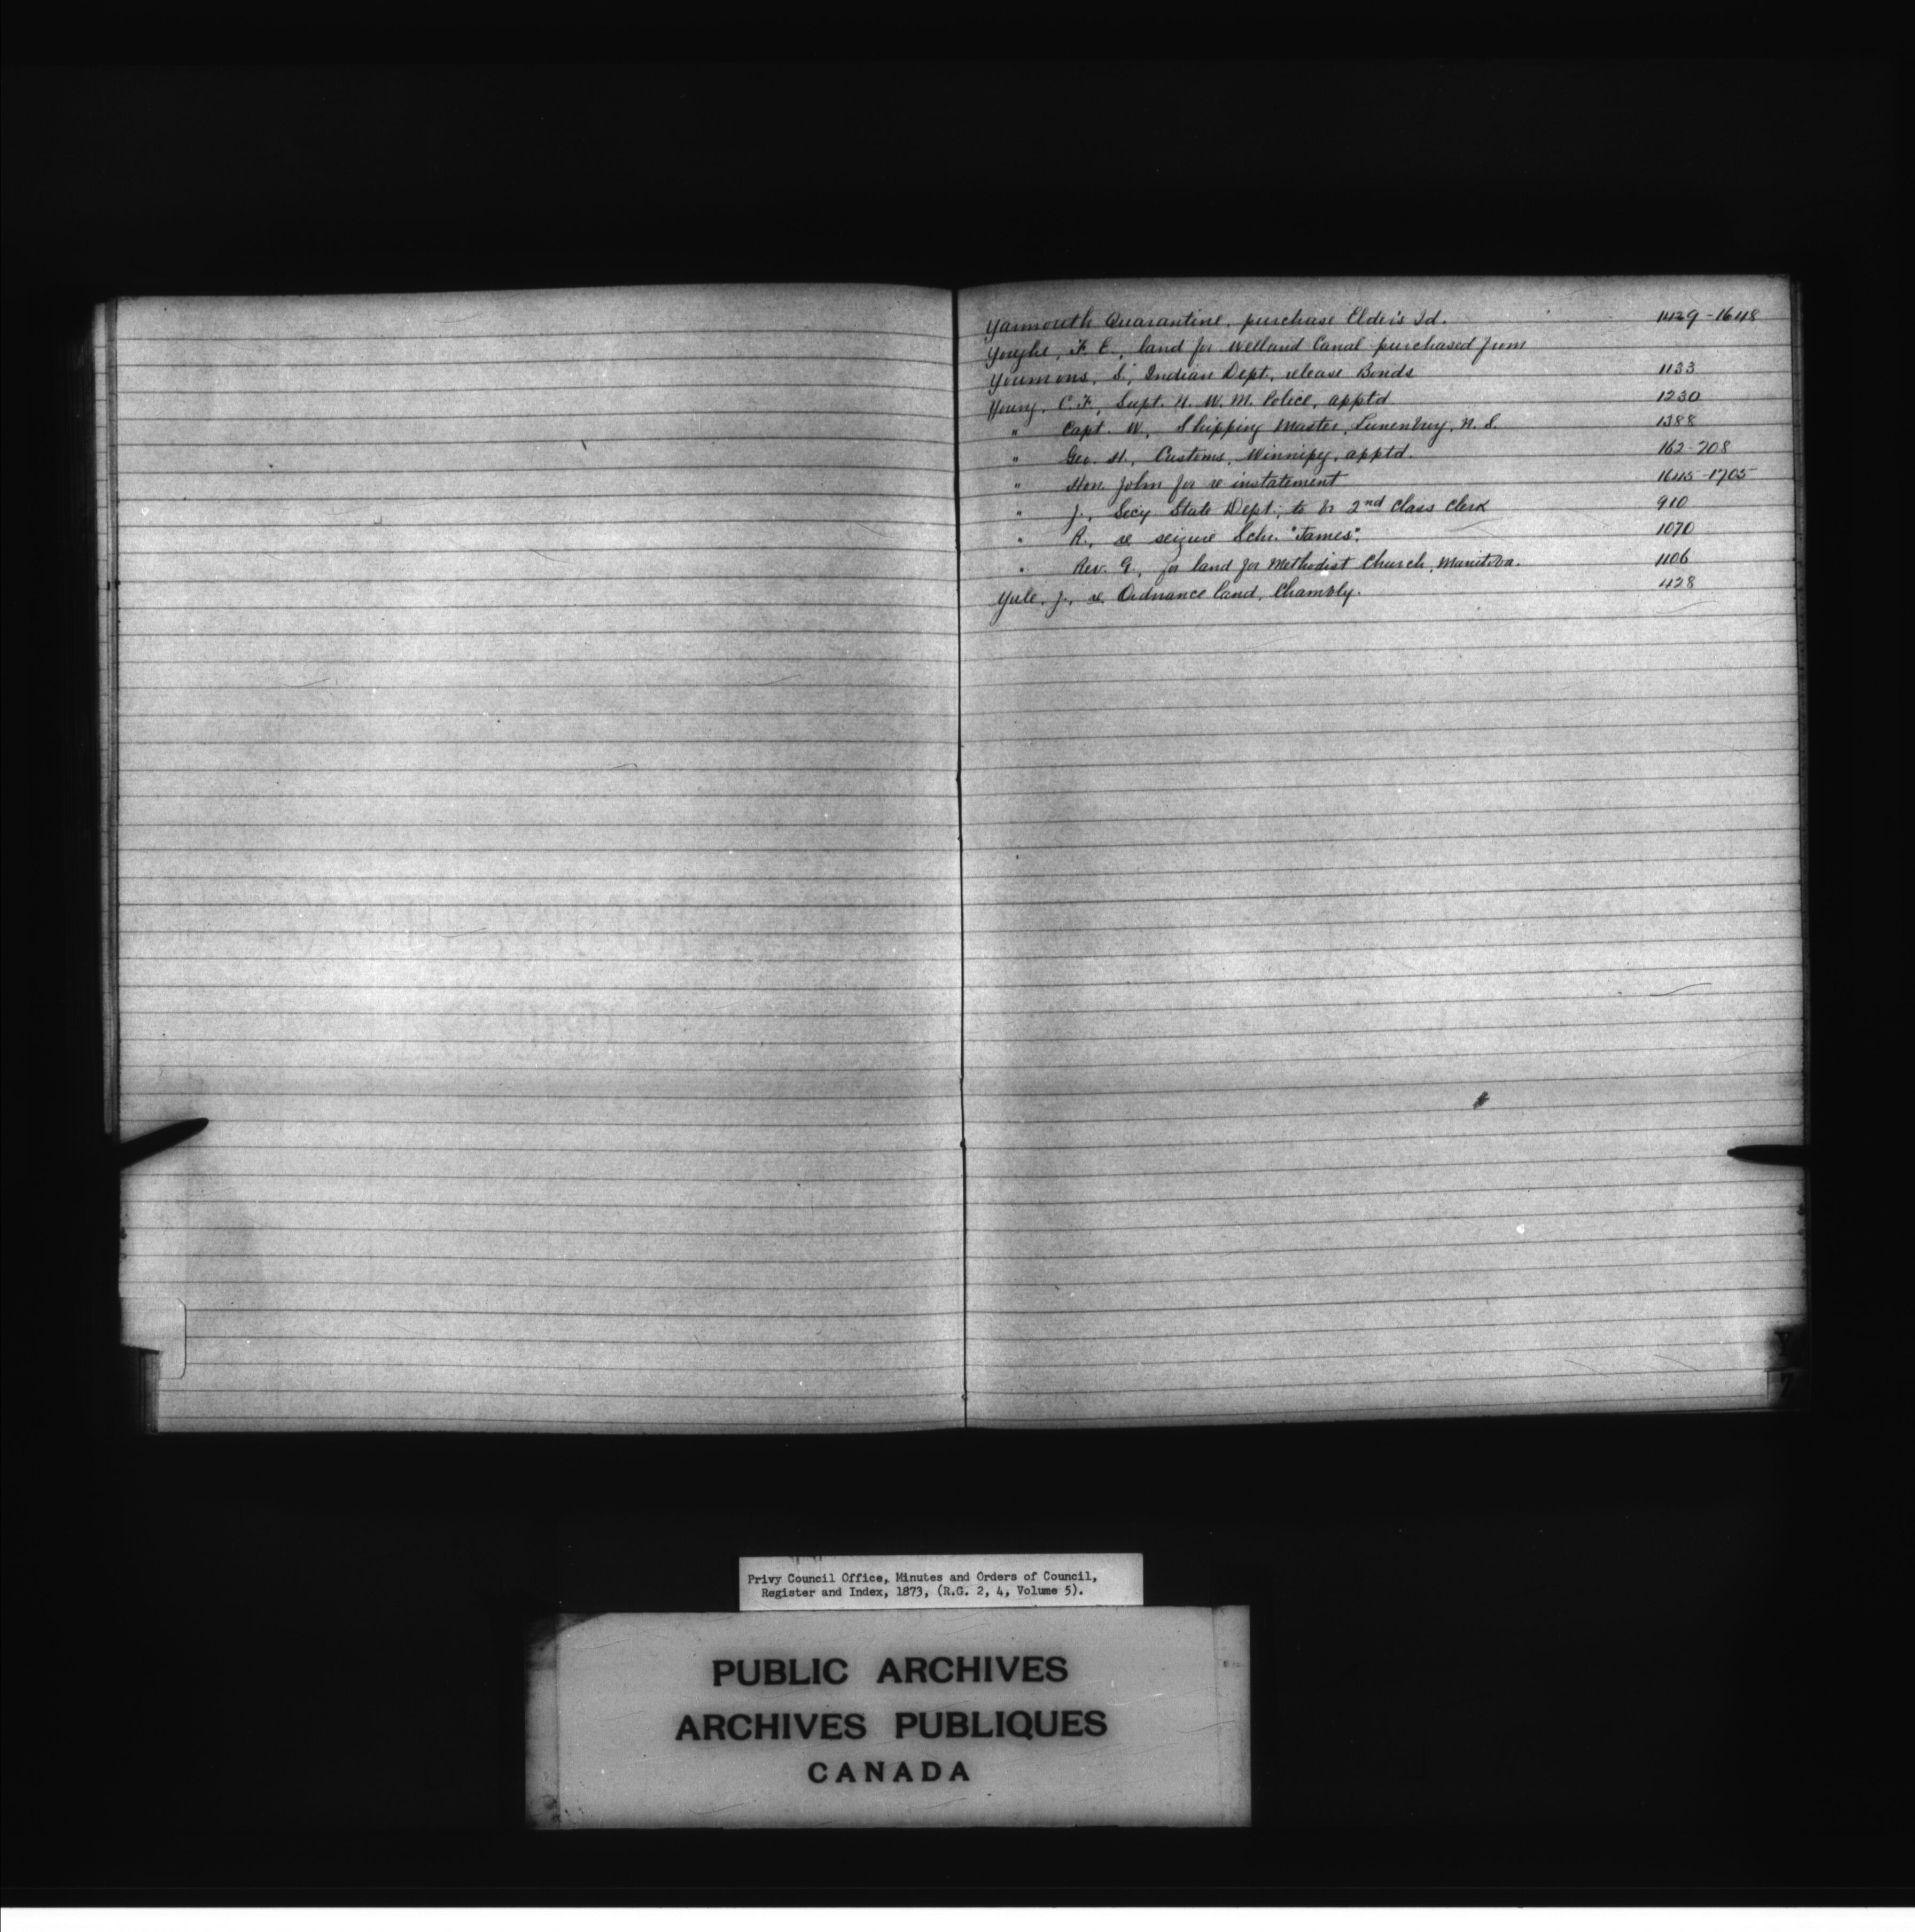 Yarmouth Quarantine, purchase Elder's Id. 1429-1648
F. E., land for Welland Canal purchased from
Youmons, S., Indian Dept., release Bonds 1133
Young, C. F., Supt. N. W. M. Police, apptd 1230
" Capt. W., Shipping Master, Lunenburg, N. S. 1388
" Geo. H., Customs, Winnipeg, apptd. 162-208
" Hon. John for re instatement 1645-1705
" J., Secy State Dept., to be 2nd Class Clerk 910
" R., re seizure Schr. "James". 1070
" Rev. G., for land for Methodist Church, Manitoba. 1106
Yule, J., re Ordnance land, Chambly. 428
Y
Z
Privy Council Office, Minutes and Orders of Council,
Register and Index, 1873, (R.G. 2, 4, Volume 5).
PUBLIC ARCHIVES
ARCHIVES PUBLIQUES
CANADA